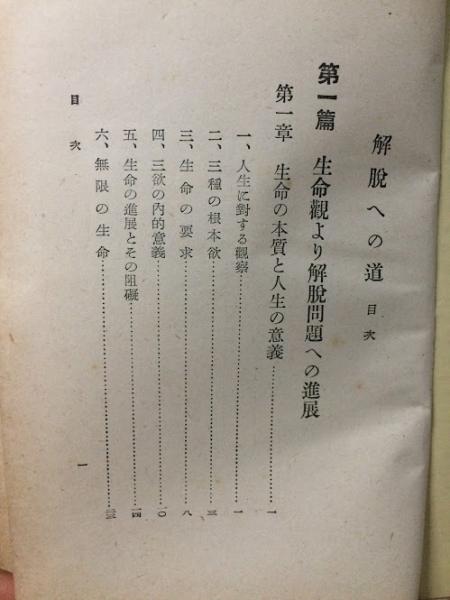 解脫への道 目次
第一篇 生命觀より解脫問題への進展
第一章 生命の本質と人生の意義……一
一、人生に對する觀察……一
二、三種の根本欲……三
三、生命の要求……八
四、三欲の內的意義……一〇
五、生命の進展とその阻礙……一四
六、無限の生命……
目次 一